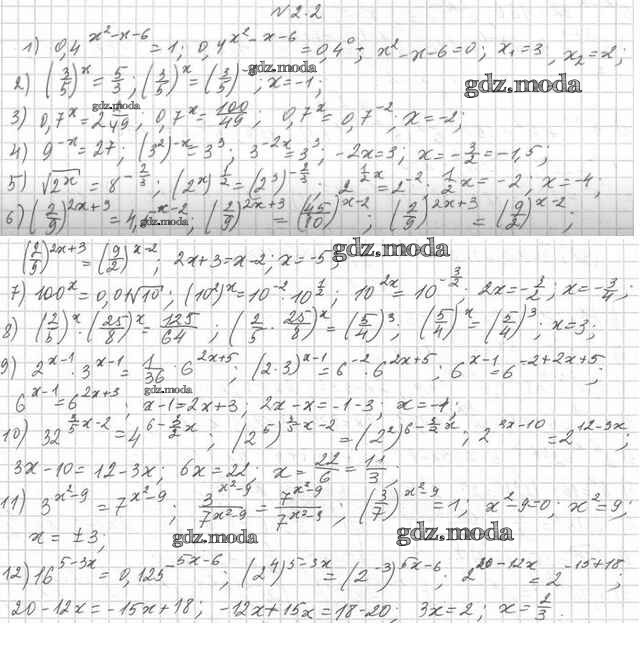 №2.2
1) 0,4^{x²-x-6} = 1; 0,4^{x²-x-6} = 0,4⁰; x²-x-6=0; x₁=3; x₂=2;
2) (3/5)^x = 5/3; (3/5)^x = (3/5)^{-1}; x=-1;
gdz.moda
gdz.moda
gdz.moda
3) 0,7^x = 2 2/49; 0,7^x = 100/49; 0,7^x = 0,7^{-2}; x=-2;
4) 9^{-x} = 27; (3²)^{-x} = 3³; 3^{-2x} = 3³; -2x=3; x=-3/2=-1,5;
5) √2^x = 8^{-2/3}; (2^x)^{1/2} = (2³)^{-2/3}; 2^{1/2x} = 2^{-2}; 1/2x=-2; x=-4;
6) (2/9)^{2x+3} = 4,^{x-2}; (2/9)^{2x+3} = (45/10)^{x-2}; (2/9)^{2x+3} = (9/2)^{x-2};
gdz.moda
(2/9)^{2x+3} = (9/2)^{x-2}; 2x+3=x-2; x=-5;
gdz.moda
7) 100^x = 0,01√10; (10²)^x = 10^{-2}·10^{1/2}; 10^{2x} = 10^{-3/2}; 2x=-3/2; x=-3/4;
8) (2/5)^x·(25/8)^x = 125/64; (2/5·25/8)^x = (5/4)³; (5/4)^x = (5/4)³; x=3;
9) 2^{x-1}·3^{x-1} = 1/36·6^{2x+5}; (2·3)^{x-1} = 6^{-2}·6^{2x+5}; 6^{x-1} = 6^{-2+2x+5};
gdz.moda
6^{x-1} = 6^{2x+3}; x-1=2x+3; 2x-x=-1-3; x=-4;
10) 32^{3/5x-2} = 4^{6-3/2x}; (2⁵)^{3/5x-2} = (2²)^{6-3/2x}; 2^{3x-10} = 2^{12-3x};
3x-10=12-3x; 6x=22; x=22/6=11/3;
11) 3^{x²-9} = 7^{x²-9}; 3^{x²-9}/7^{x²-9} = 7^{x²-9}/7^{x²-9}; (3/7)^{x²-9} = 1; x²-9=0; x²=9;
x=±3;
gdz.moda
gdz.moda
12) 16^{5-3x} = 0,125^{5x-6}; (2⁴)^{5-3x} = (2^{-3})^{5x-6}; 2^{20-12x} = 2^{-15+18};
20-12x=-15x+18; -12x+15x=18-20; 3x=2; x=2/3.